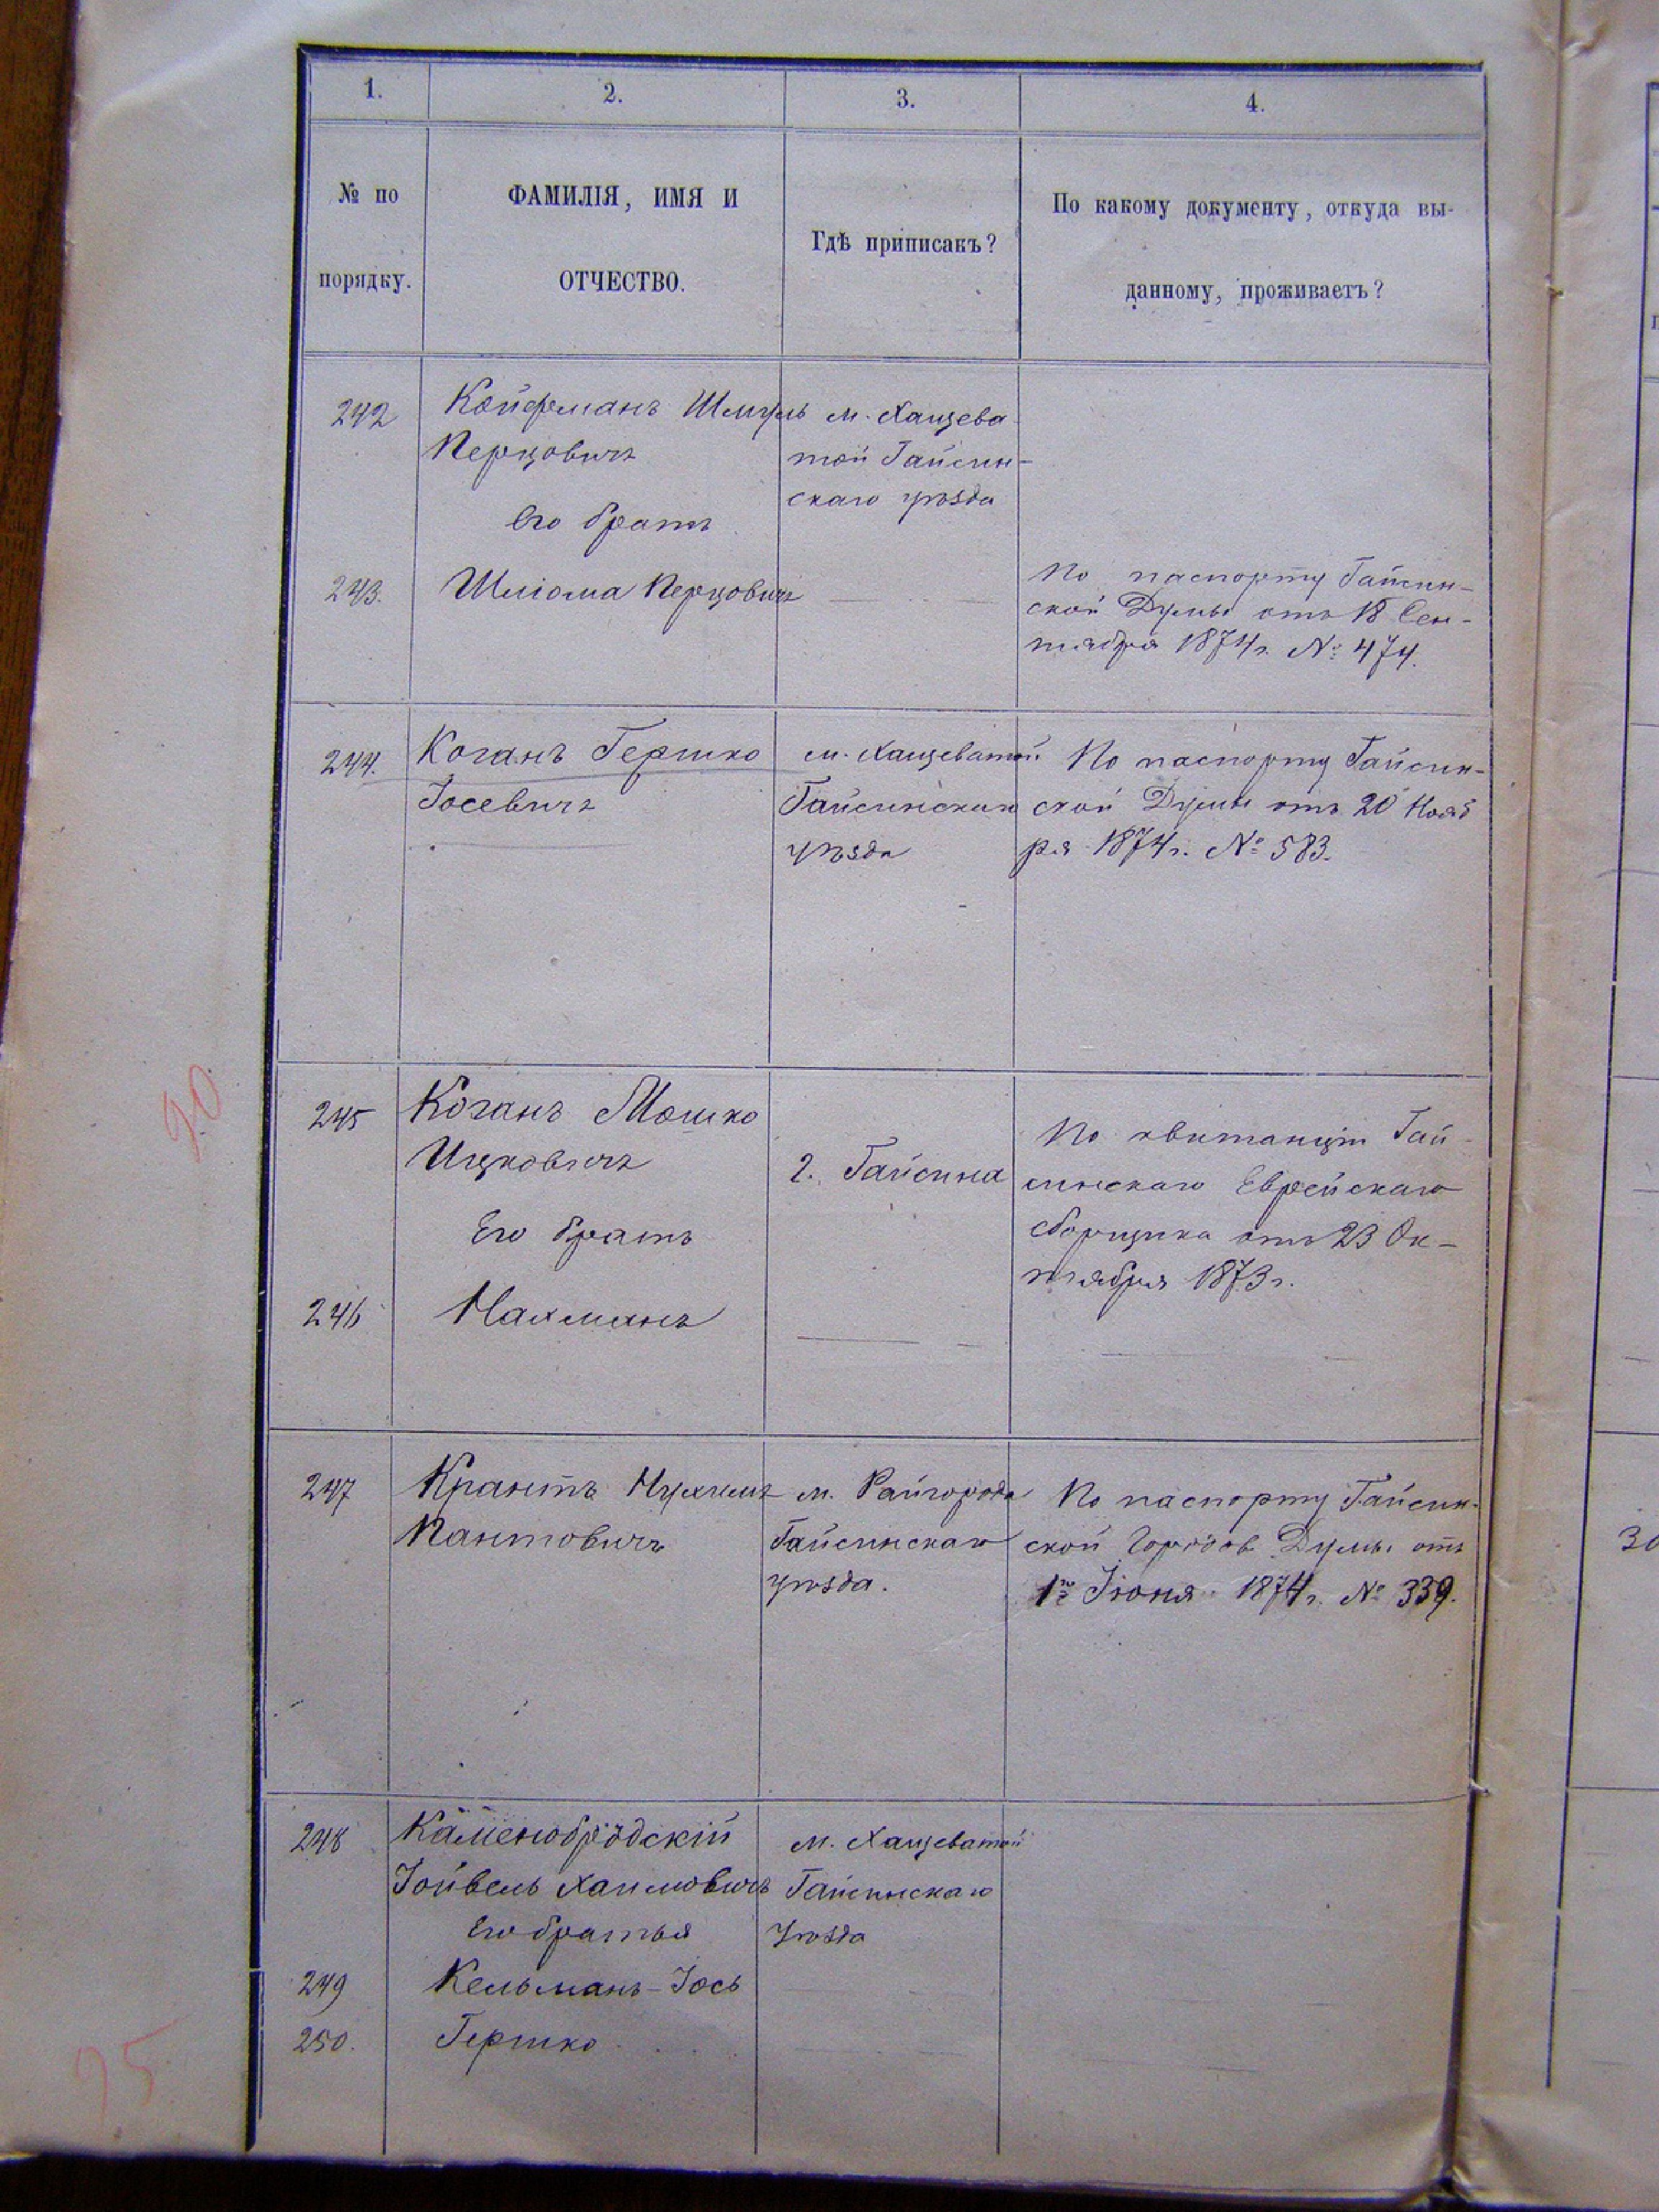 1.
2.
3.
4.
№ по
порядку.
ФАМИЛІЯ, ИМЯ И
ОТЧЕСТВО.
Гдѣ приписакъ?
По какому документу, откуда вы-
данному, проживаетъ?
242
Койфманъ Шмуль
Перцовичъ
м. Хащева
той Гайсин-
скаго уѣзда
Его братъ
243.
Шліома Перцовичъ
По паспорту Гайсин-
ской Думы отъ 18 Сен-
тября 1874 г. № 474.
244.
Коганъ Гершко
Іосевичъ
м. Хащеватой
Гайсинскаго
уѣзда
По паспорту Гайсин-
ской Думы отъ 20 Нояб
ря 1874 г. № 583.
245
Коганъ Мошко
Ицковичъ
г. Гайсина
По квитанціи Гай-
синскаго Еврейскаго
сборщика отъ 23 Ок-
тября 1873 г.
Его братъ
246
Нахманъ
247
Крантъ Нухимъ
м. Райгорода
Гайсинскаго
уѣзда.
По паспорту Гайсин-
ской Городов. Думы отъ
1го Іюня 1874 г. № 339.
248
Каменобродскій
Іойвель Хаимовичъ
м. Хащеватой
Гайсинскаго
Уѣзда
Его братья
249
Кельманъ-Іось
250.
Гершко
90
95